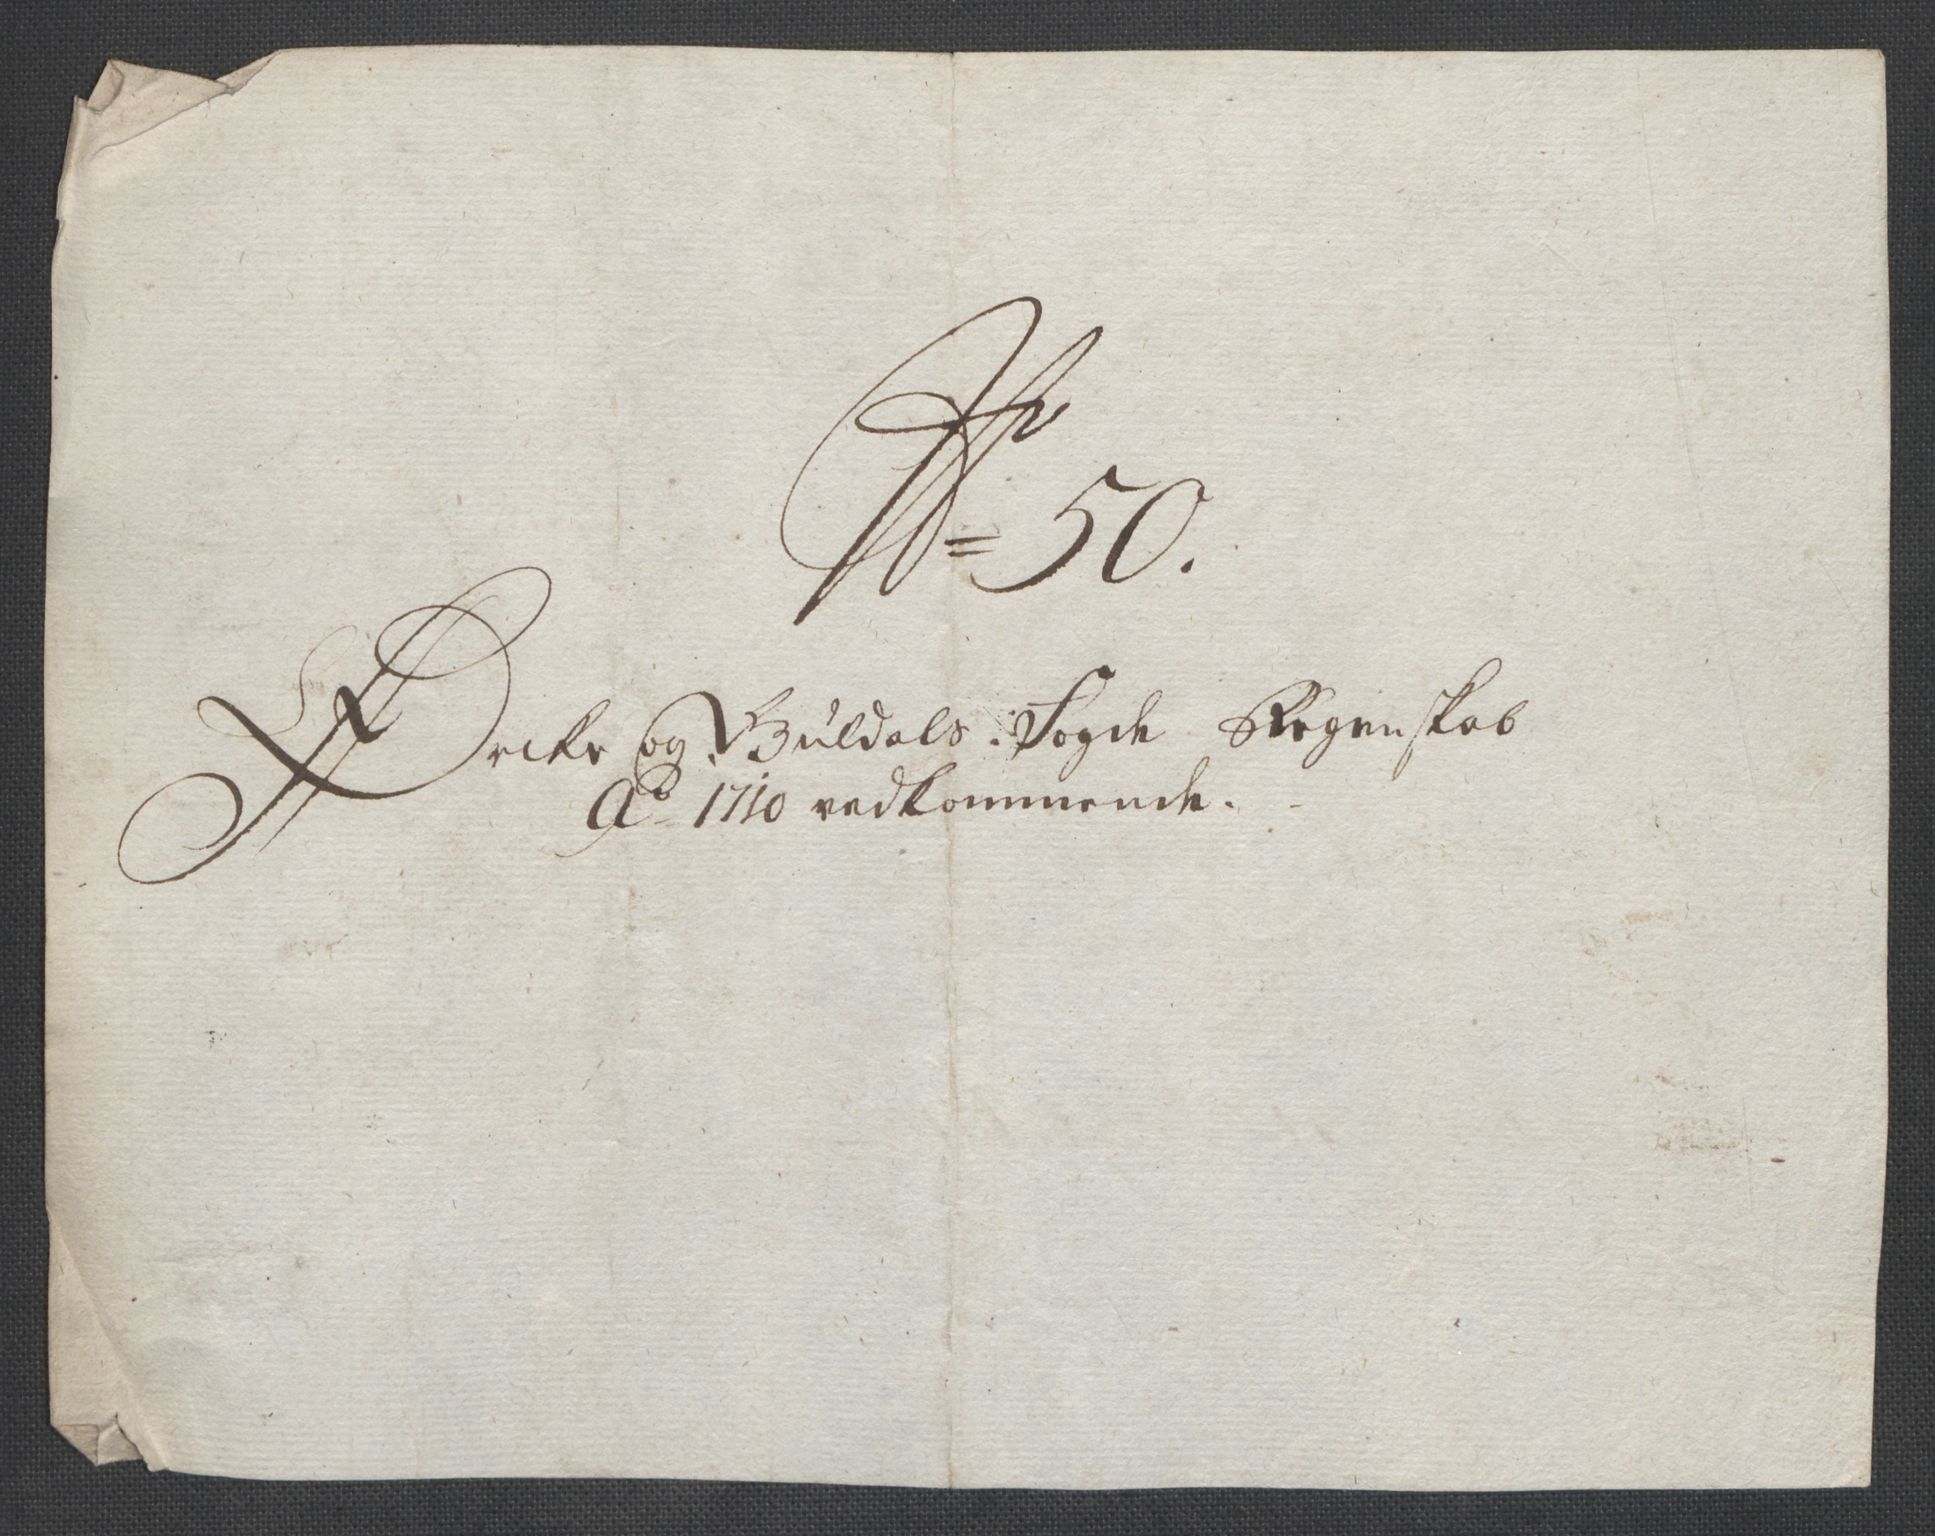 No 50.
Orckr og Guldals Fogde Regenskab
Ao 1710 vedkommende.